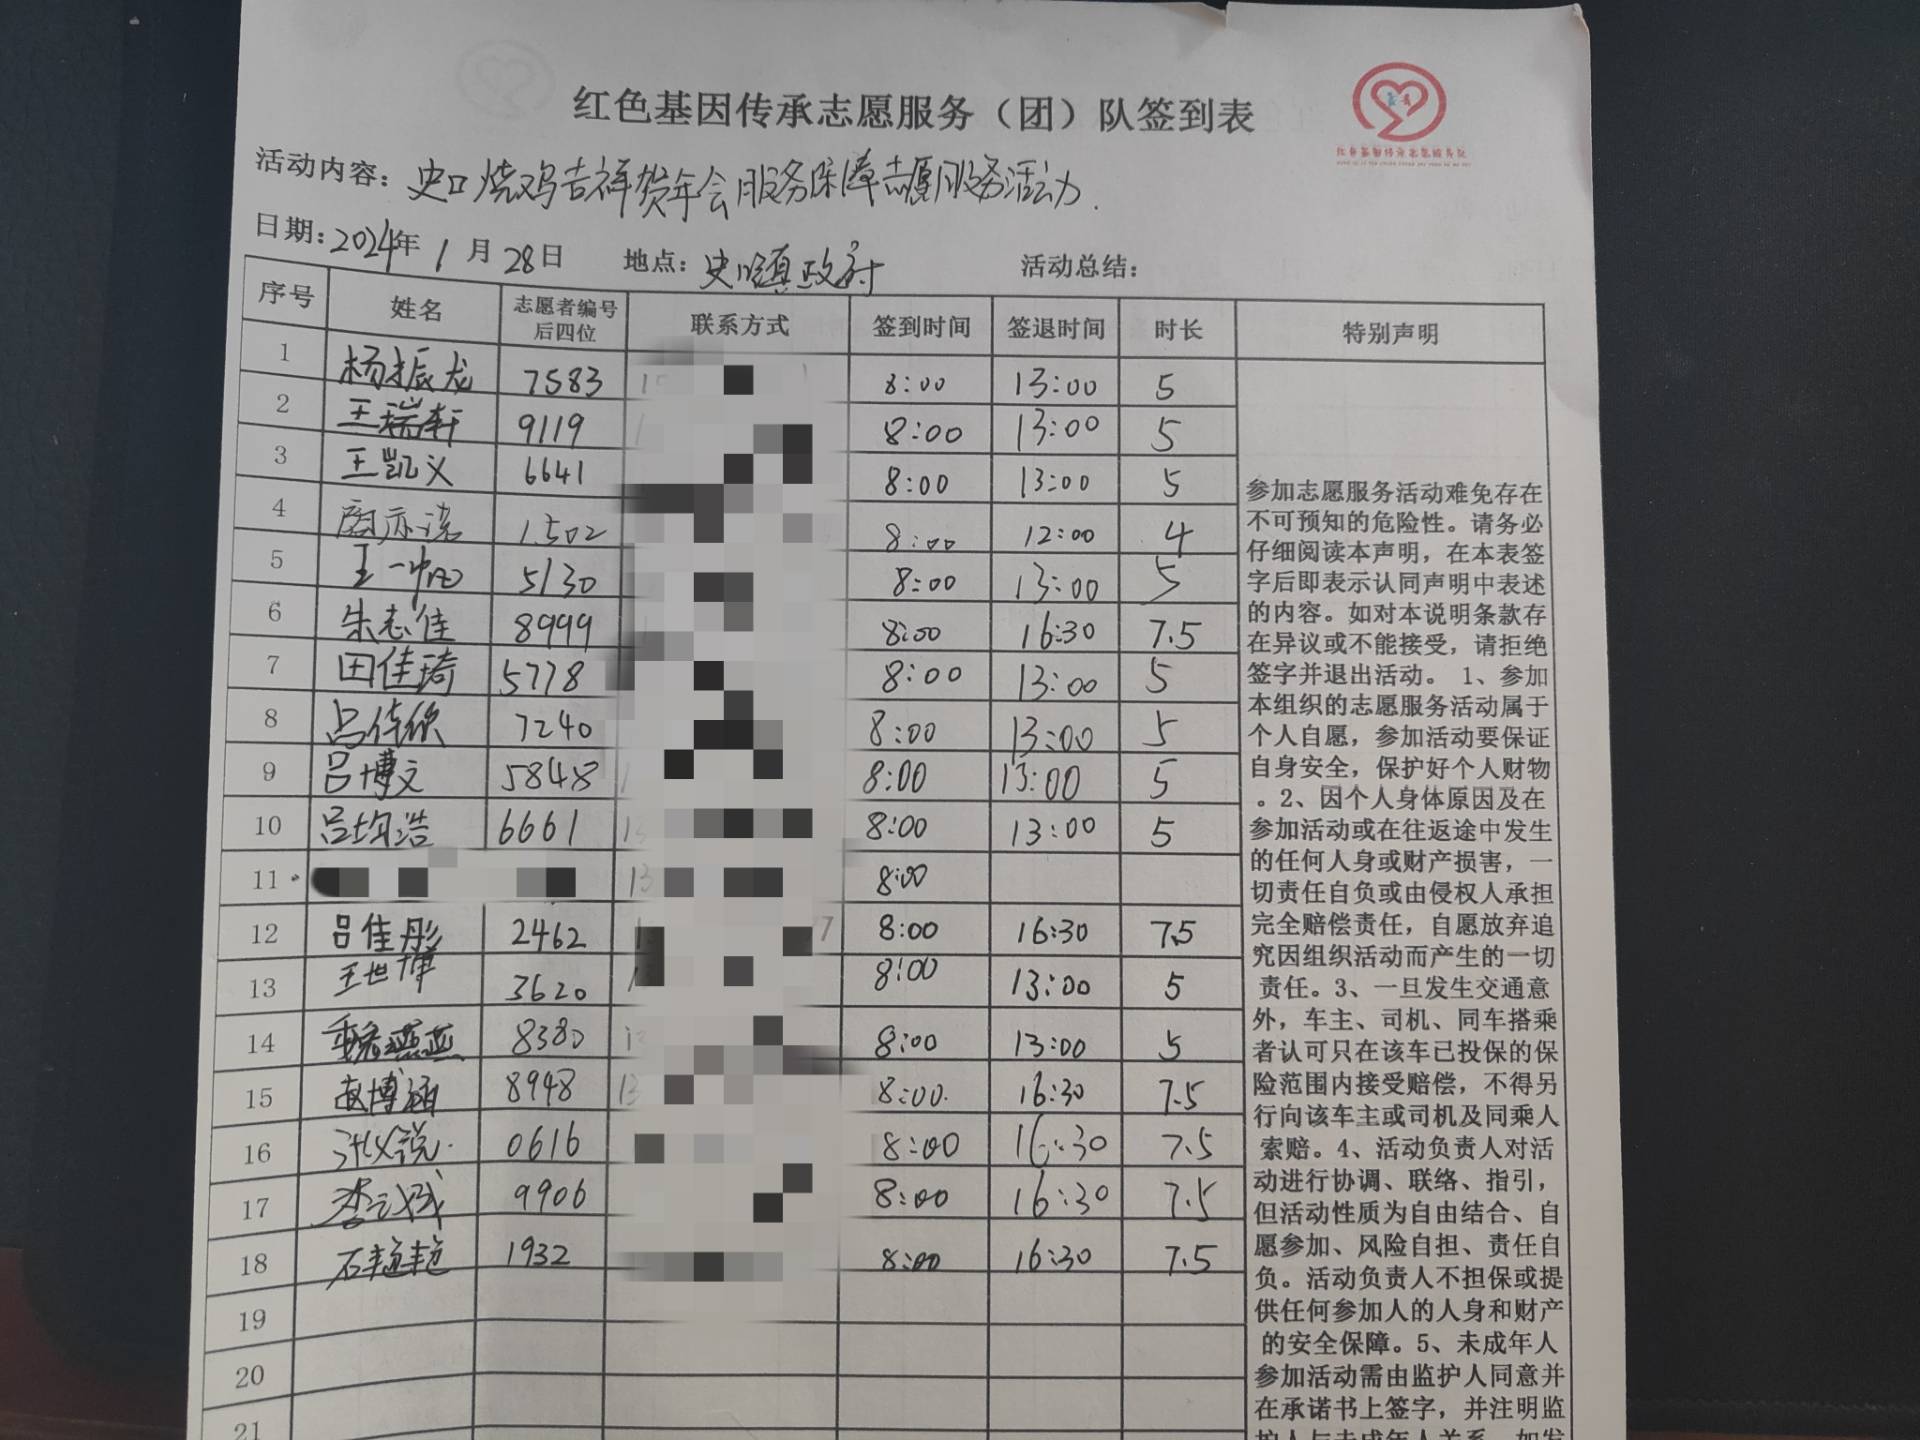 红色基因传承志愿服务（团）队签到表
活动内容：史口烧鸡吉祥贺年会服务保障志愿服务活动.
日期：2024年1月28日 地点：史口镇政府 活动总结：
序号 姓名 志愿者编号后四位 联系方式 签到时间 签退时间 时长 特别声明
1 杨振龙 7583 8:00 13:00 5
2 王瑞轩 9119 8:00 13:00 5
3 王凯义 6641 8:00 13:00 5
4 1502 8:00 12:00 4
5 王一 5130 8:00 13:00 5
6 朱志佳 8999 8:00 16:30 7.5
7 田佳琦 5778 8:00 13:00 5
8 吕佳欣 7240 8:00 13:00 5
9 吕博文 5848 8:00 13:00 5
10 吕均浩 6661 13 8:00 13:00 5
11 13 8:00
12 吕佳彤 2462 7 8:00 16:30 7.5
13 王世博 3620 8:00 13:00 5
14 魏燕燕 8380 8:00 13:00 5
15 赵博涵 8948 13 8:00 16:30 7.5
16 0616 8:00 16:30 7.5
17 李 9906 8:00 16:30 7.5
18 石艳艳 1932 8:00 16:30 7.5
19
20
21
参加志愿服务活动难免存在
不可预知的危险性。请务必
仔细阅读本声明，在本表签
字后即表示认同声明中表述
的内容。如对本说明条款存
在异议或不能接受，请拒绝
签字并退出活动。 1、参加
本组织的志愿服务活动属于
个人自愿，参加活动要保证
自身安全，保护好个人财物
。2、因个人身体原因及在
参加活动或在往返途中发生
的任何人身或财产损害，一
切责任自负或由侵权人承担
完全赔偿责任，自愿放弃追
究因组织活动而产生的一切
责任。3、一旦发生交通意
外，车主、司机、同车搭乘
者认可只在该车已投保的保
险范围内接受赔偿，不得另
行向该车主或司机及同乘人
索赔。4、活动负责人对活
动进行协调、联络、指引，
但活动性质为自由结合、自
愿参加、风险自担、责任自
负。活动负责人不担保或提
供任何参加人的人身和财产
的安全保障。5、未成年人
参加活动需由监护人同意并
在承诺书上签字，并注明监
护人与未成年人关系，如发